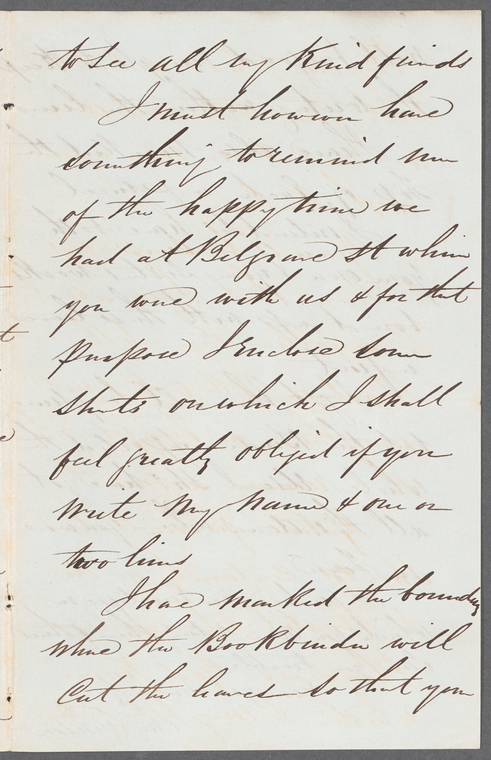 to see all my kind friends
I must however have
something to remind me
of the happy time we
had at Belgrave St when
you were with us & for that
purpose I enclose some
sheets on which I shall
feel greatly obliged if you
write my name & one or
two lines
I have marked the boundary
where the Bookbinder will
cut the leaves so that you